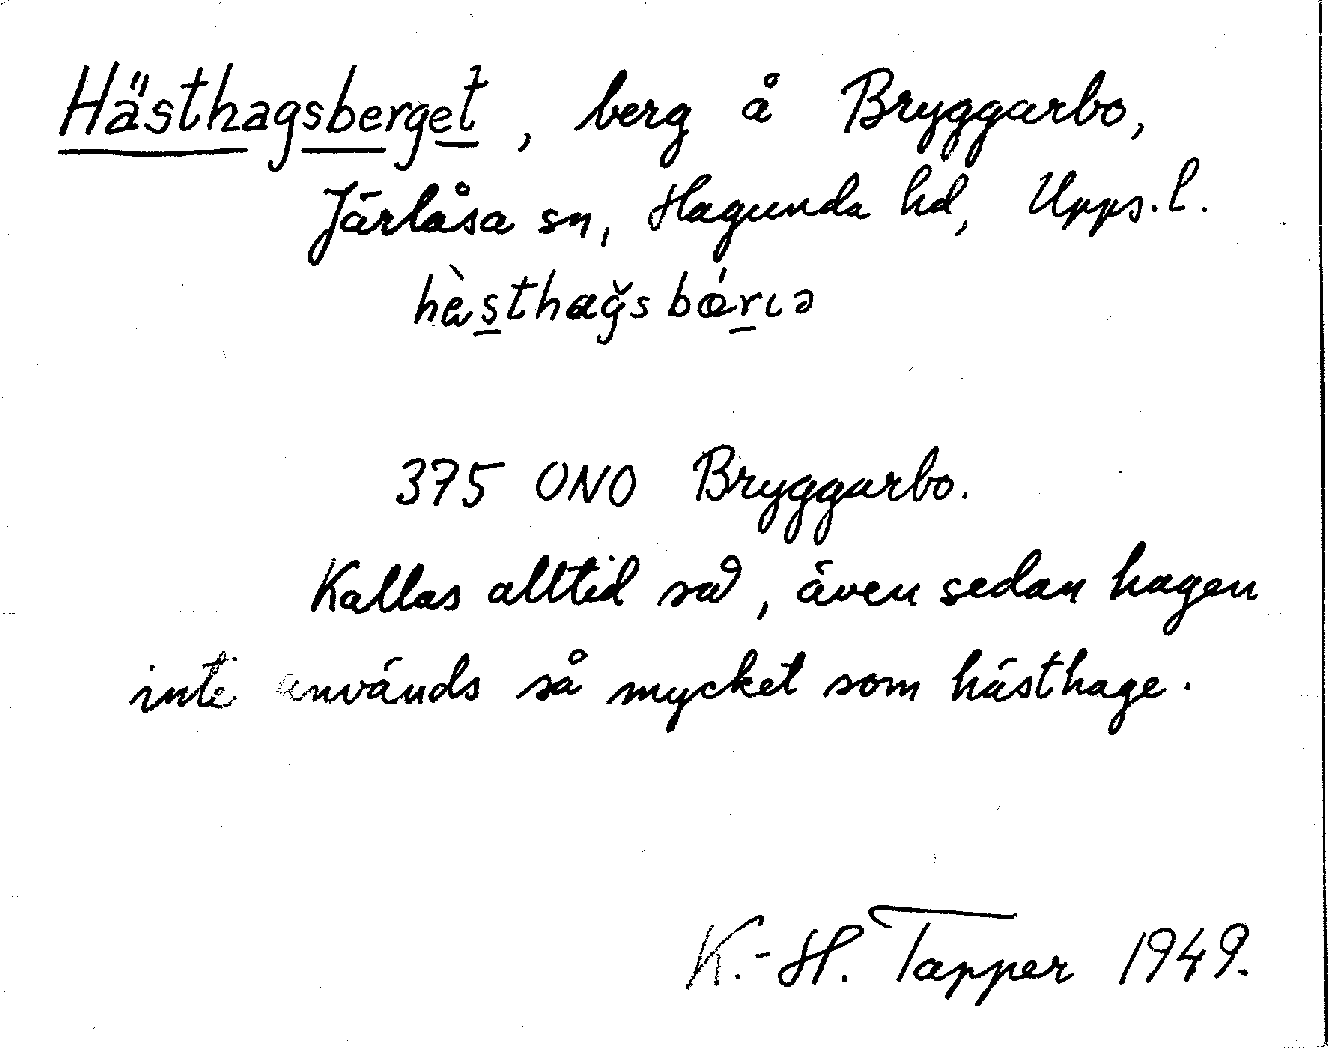 Hästhagsberget, berg å Bryggarbo,
Järlåsa sn, Hagunda hd, Upps. l.
hèsthaǧsbárıə
375 ONO Bryggarbo.
Kallas alltid så, även sedan hagen
inte används så mycket som hästhage.
K.-H. Tapper 1949.